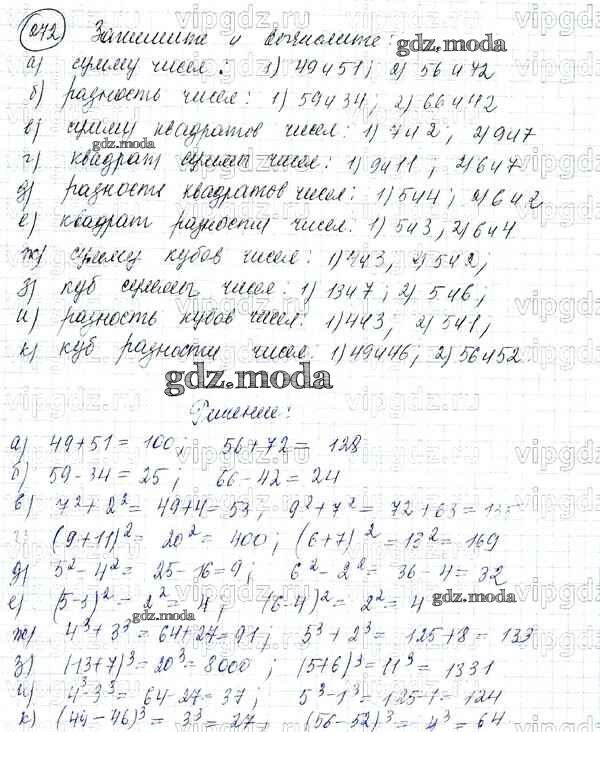 072 Запишите и вычислите:
а) сумму чисел: 1) 49 и 51; 2) 56 и 72
б) разность чисел: 1) 59 и 34; 2) 66 и 42
в) сумму квадратов чисел: 1) 7 и 2; 2) 9 и 7
г) квадрат суммы чисел: 1) 9 и 11; 2) 6 и 7
д) разности квадратов чисел: 1) 5 и 4; 2) 6 и 2
е) квадрат разности чисел: 1) 5 и 3, 2) 6 и 4
ж) сумму кубов чисел: 1) 4 и 3, 2) 5 и 2;
з) куб суммы чисел: 1) 13 и 7; 2) 5 и 6;
и) разность кубов чисел: 1) 4 и 3; 2) 5 и 1;
к) куб разности чисел: 1) 49 и 46; 2) 56 и 52
gdz.moda
Решение:
а) 49+51 = 100; 56+72 = 128
б) 59-34 = 25; 66-42 = 24
в) 7²+2² = 49+4 = 53; 9²+7² = 72+63 =
(9+11)² = 20² = 400; (6+7)² = 13² = 169
д) 5²-4² = 25-16=9; 6²-2² = 36-4 = 32
е) (5-3)² = 2² = 4; (6-4)² = 2² = 4
ж) 4³+3³ = 64+27=91; 5³+2³ = 125+8 = 133
з) (13+7)³ = 20³ = 8000; (5+6)³ = 11³ = 1331
и) 4³-3³ = 64-27 = 37; 5³-1³ = 125-1 = 124
к) (49-46)³ = 3³ = 27, (56-52)³ = 4³ = 64